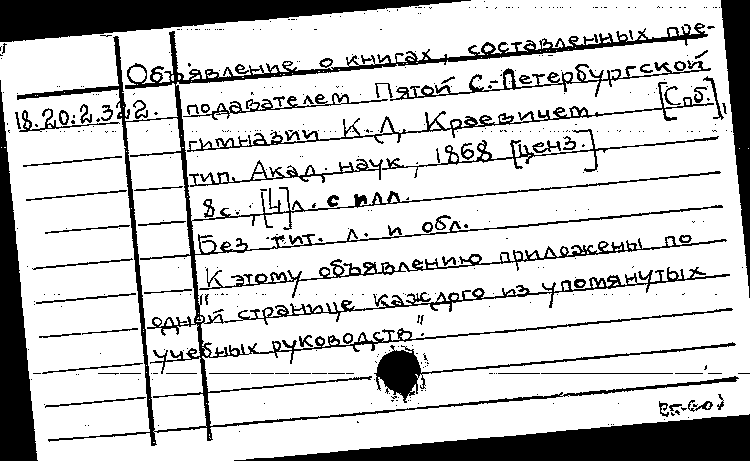 Объявление о книгах, составленных пре-
18.20.2.322. подавателем Пятой С.-Петербургской
гимназии К.Д. Краевичем. [Спб.],
тип. Акад. наук, 1868 [ценз.].
8с.; [4]л. с илл.
Без тит. л. и обл.
"К этому объявлению приложены по
одной странице каждого из упомянутых
учебных руководств".